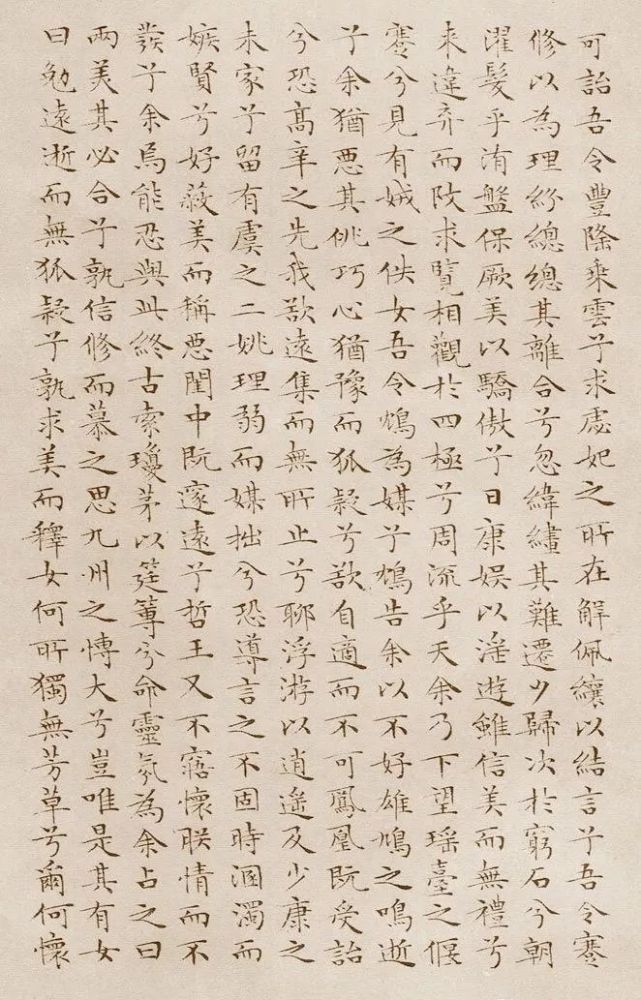 可詒吾令豐隆乘雲兮求虙妃之所在解佩纕以結言兮吾令蹇
修以為理紛總總其離合兮忽緯繣其難遷夕歸次於窮石兮朝
濯髮乎洧盤保厥美以驕傲兮日康娛以淫遊雖信美而無禮兮
来違弃而改求覽相觀於四極兮周流乎天余乃下望瑶臺之偃
蹇兮見有娀之佚女吾令鴆為媒兮鴆告余以不好雄鳩之鳴逝
兮余猶惡其佻巧心猶豫而狐疑兮欲自適而不可鳳凰既受詒
兮恐高辛之先我欲遠集而無所止兮聊浮游以逍遥及少康之
未家兮留有虞之二姚理弱而媒拙兮恐導言之不固時溷濁而
嫉賢兮好蔽美而稱惡閨中既邃遠兮哲王又不寤懷朕情而不
發兮余焉能忍與此終古索瓊茅以筳篿兮命靈氛為余占之曰
兩美其必合兮孰信修而慕之思九州之博大兮豈唯是其有女
曰勉遠逝而無狐疑兮孰求美而釋女何所獨無芳草兮爾何懷